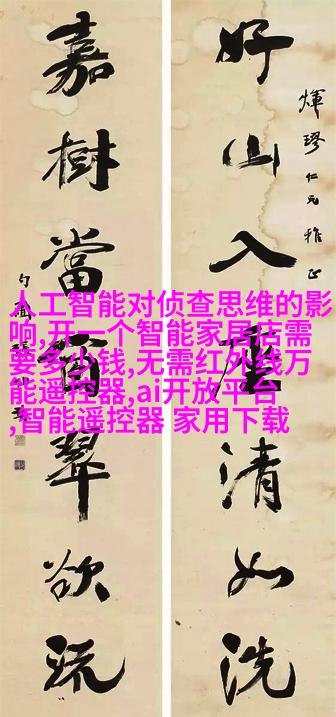 煇璆仁兄雅正
好山入座清如洗
嘉樹當窗翠欲流
人工智能对侦查思维的影
响,开一个智能家居店需
要多少钱,无需红外线万
能遥控器,ai开放平台
,智能遥控器 家用下载